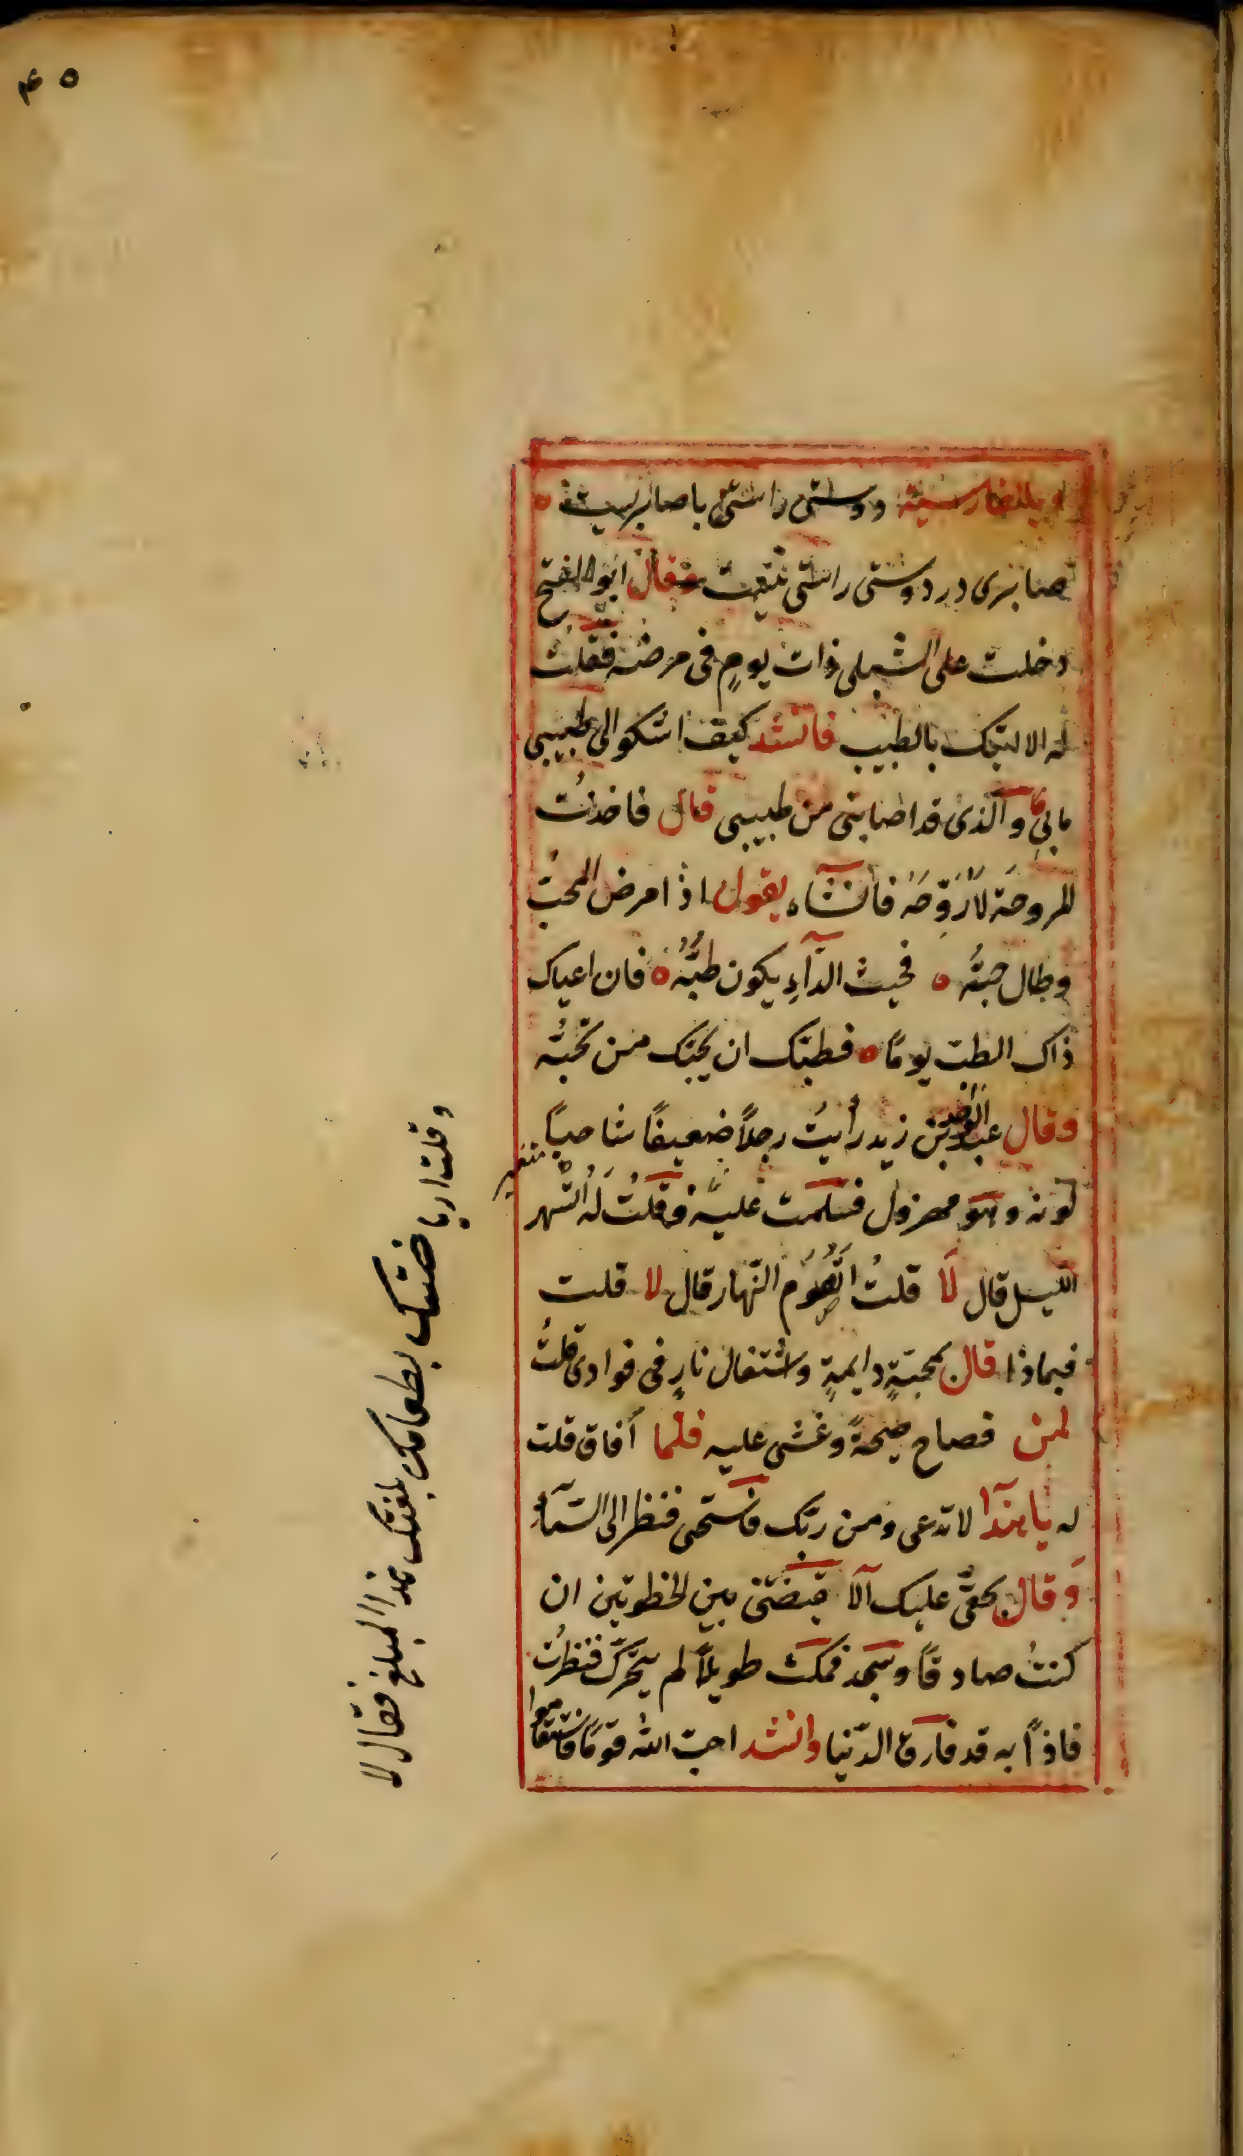 ۴۵
وبالفارسية دوستی راستی باصابریست
صابری در دوستی راستی نیست وقال ابوالفتح
دخلت على الشبلی ذات یومٍ فی مرضه فقلت
له الا اتیک بالطبیب فانشد کیف اشکو الی طبیبی
مابی والذی قد اصابنی من طبیبی قال فاخذت
المروحة لأُرَوّحَهُ فأنشاء یقول اذا مرض المحبّ
وطال حبّه فحیث الدّآءِ یکون طبُّه فان اعیاک
ذاک الطبّ یومًا فطبّک ان یحبّک من تحبّه
وقال عبدالواحد بن زید رأیتُ رجلاً ضعیفًا شاحبًا متغیر
لونه وهو مهزول فسلمت علیه فقلتُ له اتسهر
اللیل قال لا قلتُ اتصوم النّهار قال لا قلت
فبماذا قال بمحبّةٍ دایمةٍ واشتعال نارٍ فی فوادی قلتُ
لمن فصاح صیحةً وغشی علیه فلما أفاق قلت
له یا هذا لا تدعی ومن ربک فاستحی فنظر الی السّمآء
وقال بحقّی علیک الّا قبضتنی بین الخطوتین ان
کنتُ صادقًا وسجد فمکث طویلاً لم یتحرّک فنظرت
فاذاً به قد فارق الدّنیا وانشد احبّ الله قومًا فاستقاموا
وقلت اریاضتک بطعامک بلغتک هذا المبلغ فقال لا